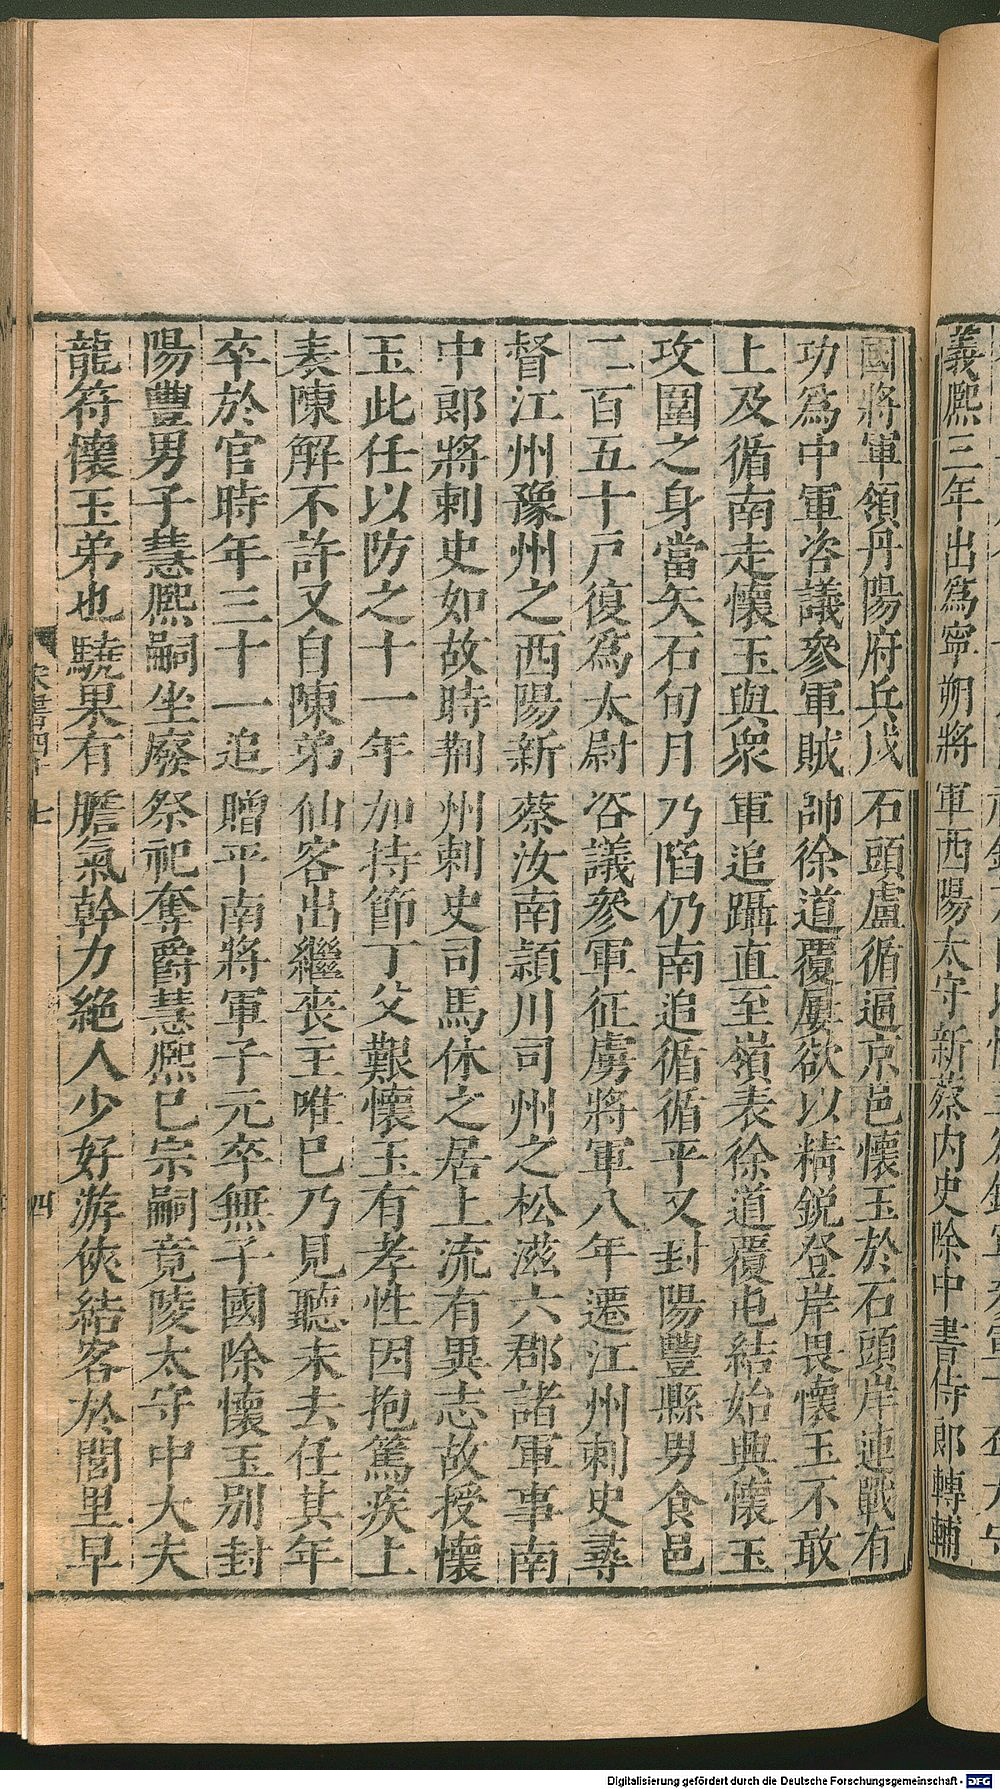 義熈三年出爲寧朔將軍西陽太守新蔡内史除中書侍郎轉輔
國將軍領丹陽府兵戍石頭盧循逼京邑懷玉於石頭岸連戰有
功爲中軍咨議參軍賊帥徐道覆屢欲以精鋭登岸畏懷玉不敢
上及循南走懷玉與衆軍追躡直至嶺表徐道覆屯結始興懷玉
攻圍之身當矢石旬月乃陷仍南追循循平又封陽豐縣男食邑
二百五十戸復爲太尉咨議參軍征虜將軍八年遷江州刺史尋
督江州豫州之西陽新蔡汝南潁川司州之松滋六郡諸軍事南
中郎將刺史如故時荆州刺史司馬休之居上流有異志故授懷
玉此任以防之十一年加持節丁父艱懷玉有孝性因抱篤疾上
表陳解不許又自陳弟仙客出繼喪主唯已乃見聽未去任其年
卒於官時年三十一追贈平南將軍子元卒無子國除懷玉别封
陽豐男子慧熈嗣坐廢祭祀奪爵慧熈巳宗嗣竟陵太守中大夫
龍符懷玉弟也驍果有膽氣幹力絶人少好游俠結客於閭里早
宋書四十七
四
Digitalisierung gefördert durch die Deutsche Forschungsgemeinschaft - DFG